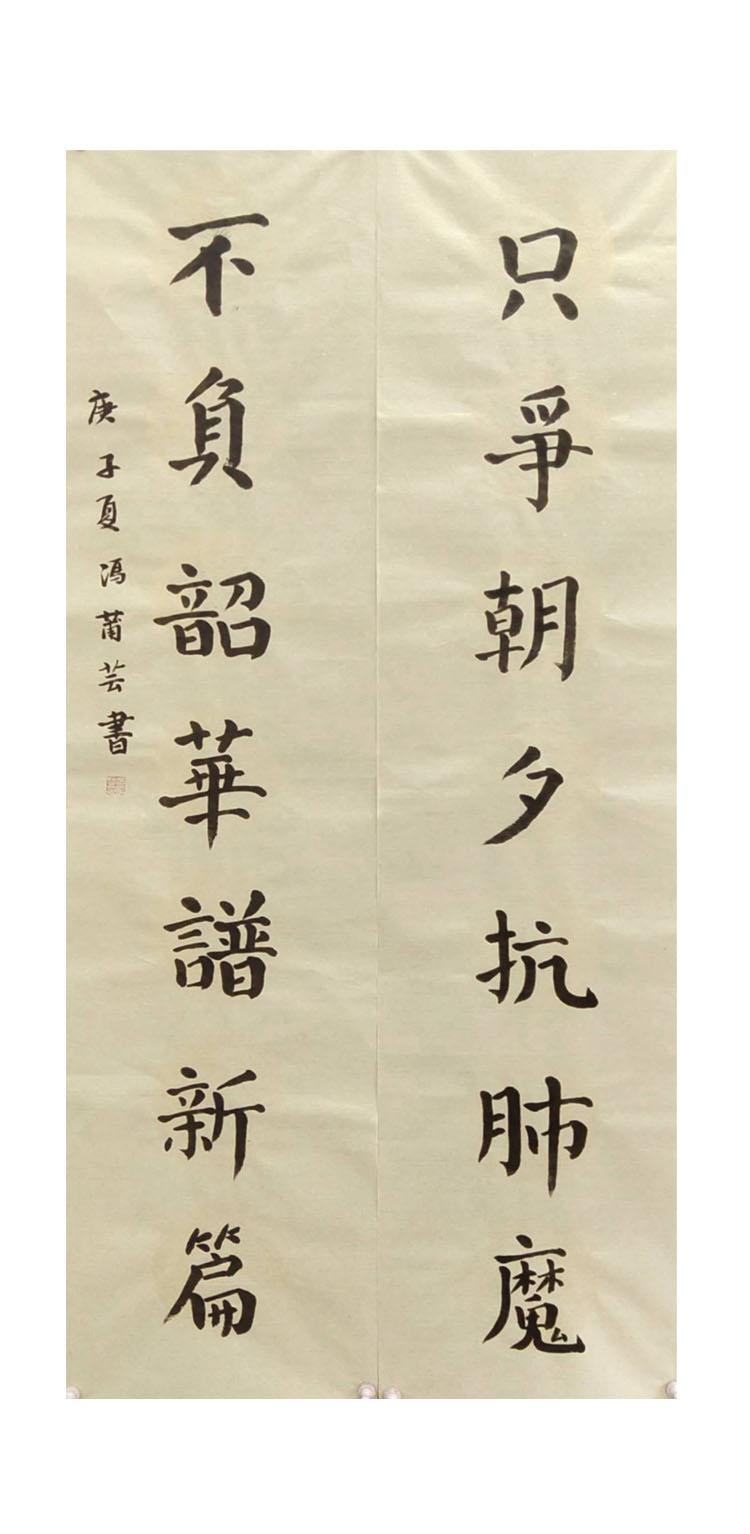 只爭朝夕抗肺魔
不負韶華譜新篇
庚子夏馮莆芸書